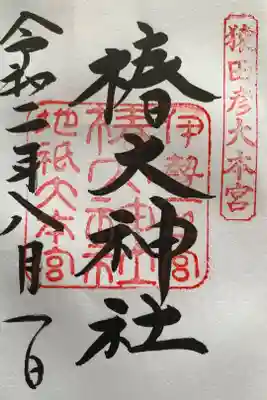 猿田彦大本宮
椿大神社
伊勢一宮
椿大神社
地祇大本宮
令和二年八月一日